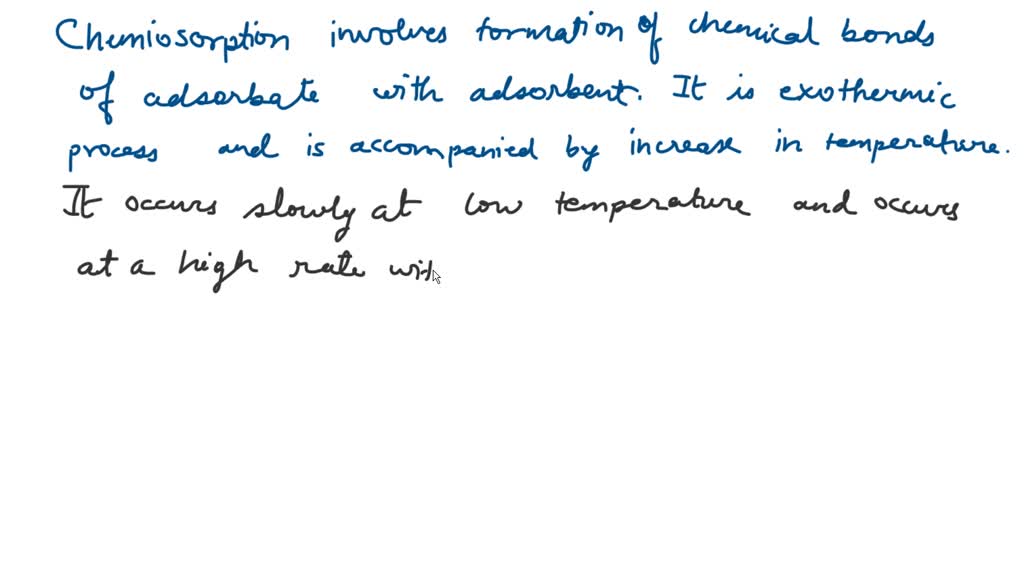 Chemiosorption involves formation of chemical bonds
of adsorbate with adsorbent. It is exothermic
process and is accompanied by increase in temperature.
It occurs slowly at low temperature and occurs
at a high rate wit